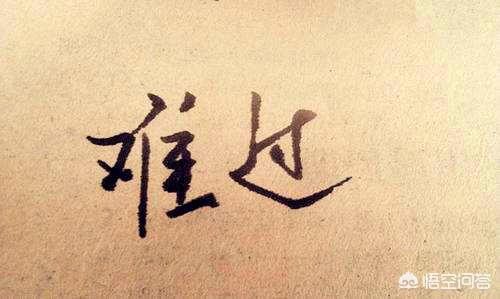 难过
悟空问答